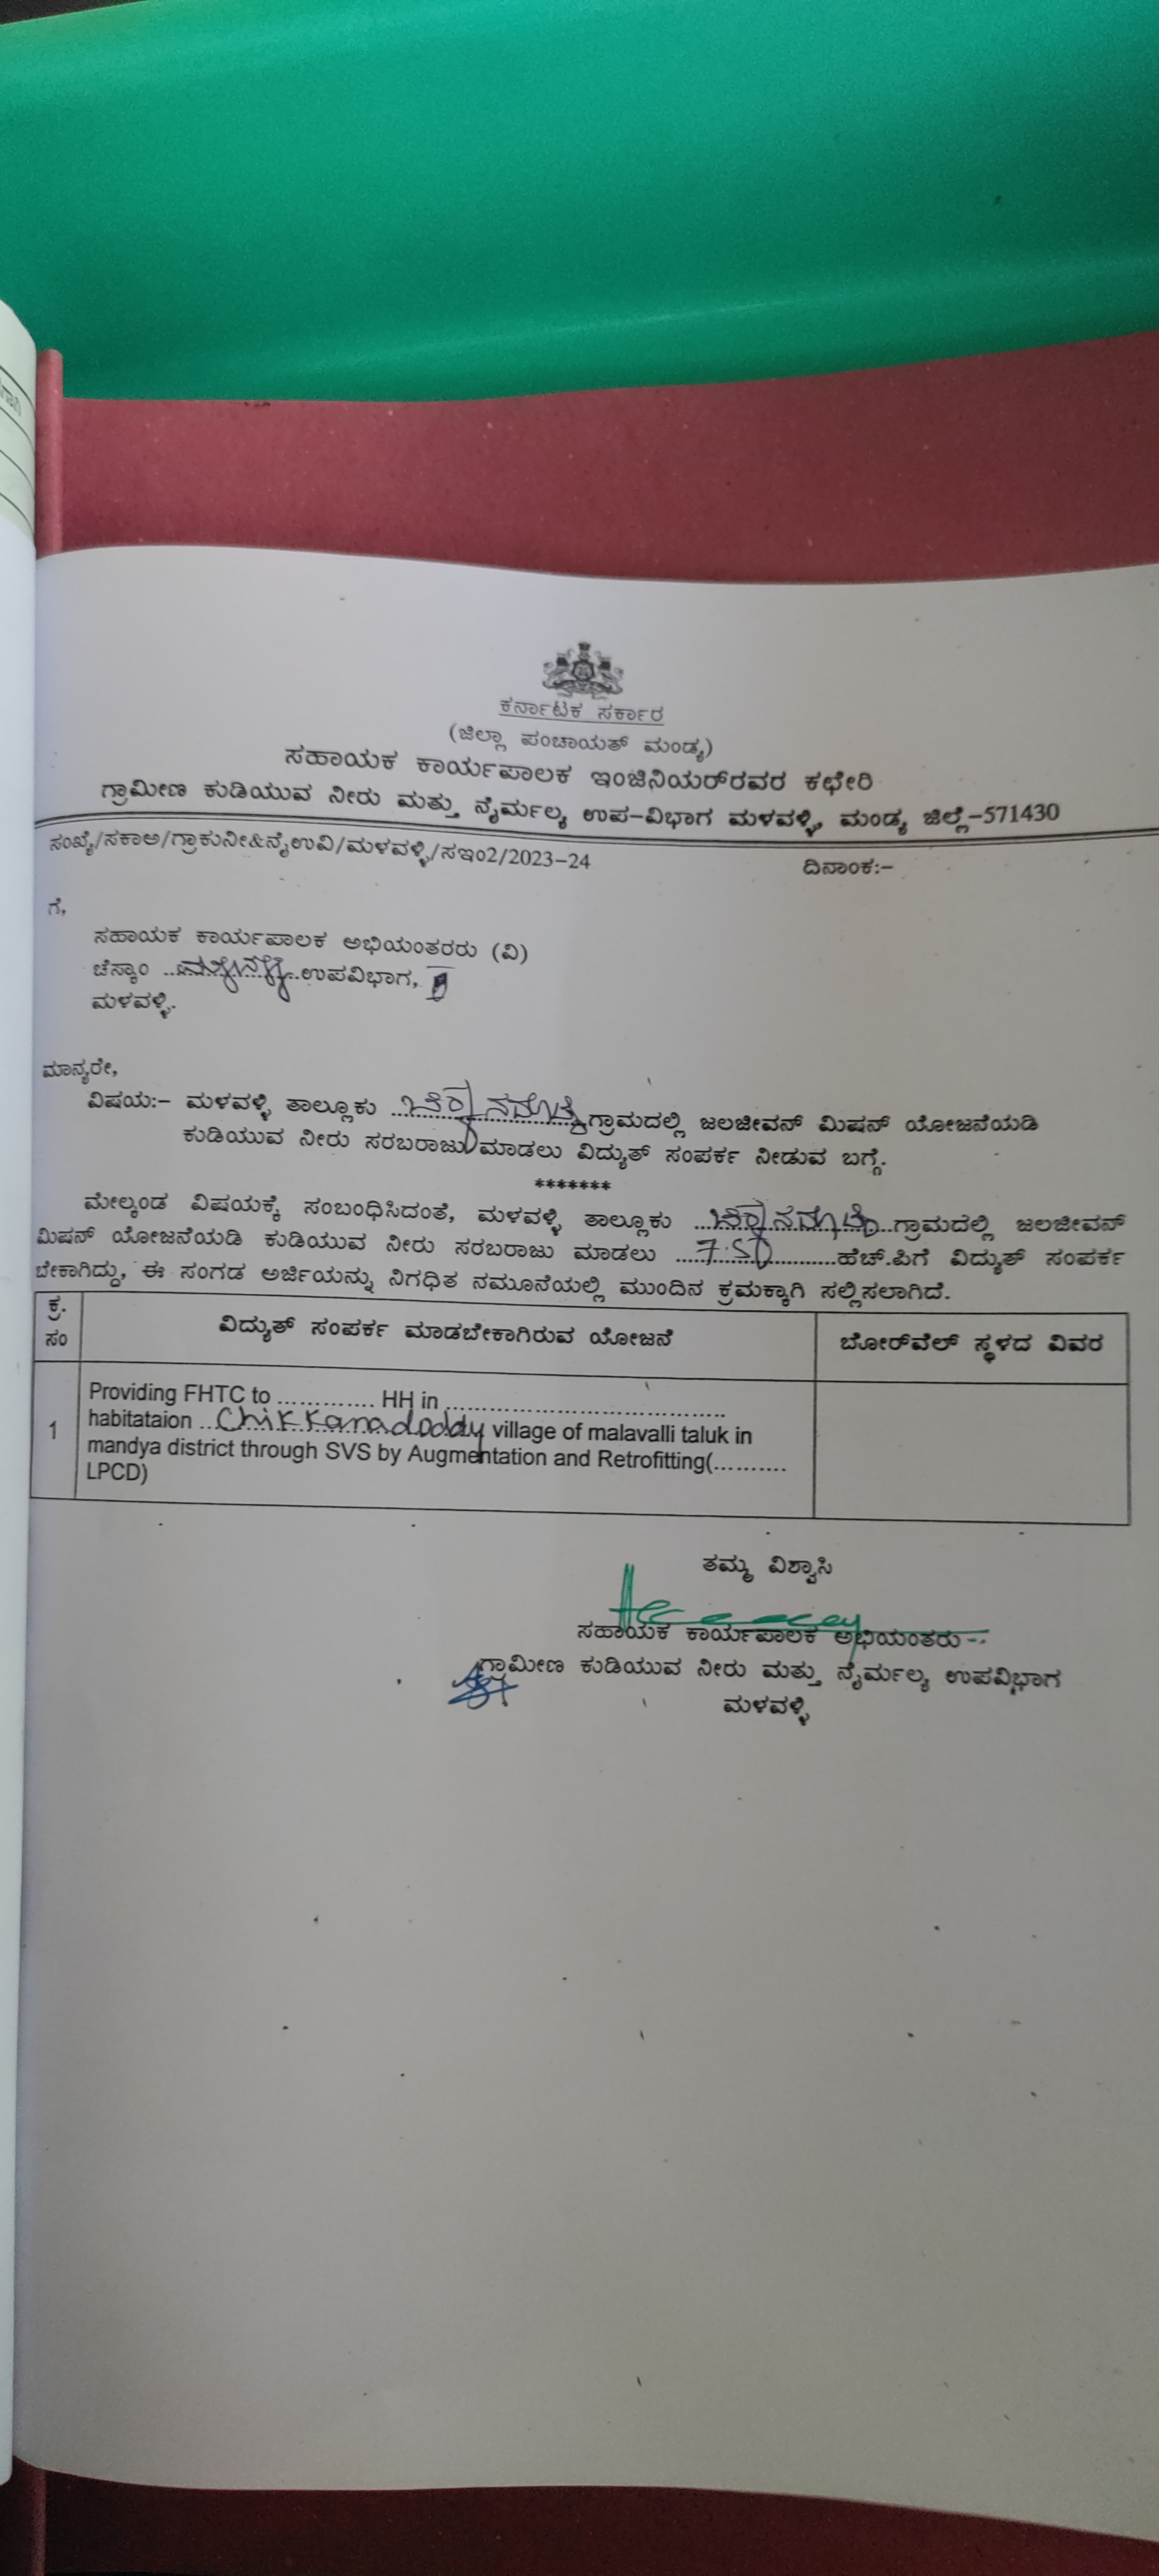 ಕರ್ನಾಟಕ ಸರ್ಕಾರ
(ಜಿಲ್ಲಾ ಪಂಚಾಯತ್ ಮಂಡ್ಯ)
ಸಹಾಯಕ ಕಾರ್ಯಪಾಲಕ ಇಂಜಿನಿಯರ್‌ರವರ ಕಛೇರಿ
ಗ್ರಾಮೀಣ ಕುಡಿಯುವ ನೀರು ಮತ್ತು ನೈರ್ಮಲ್ಯ ಉಪ-ವಿಭಾಗ ಮಳವಳ್ಳಿ, ಮಂಡ್ಯ ಜಿಲ್ಲೆ-571430
ಸಂಖ್ಯೆ/ಸಕಾಅ/ಗ್ರಾಕುನೀ&ನೈಉವಿ/ಮಳವಳ್ಳಿ/ಸಇಂ2/2023-24 ದಿನಾಂಕ:-
ಗೆ,
ಸಹಾಯಕ ಕಾರ್ಯಪಾಲಕ ಅಭಿಯಂತರರು (ವಿ)
ಚೆಸ್ಕಾಂ ಉಪವಿಭಾಗ,
ಮಳವಳ್ಳಿ.
ಮಾನ್ಯರೇ,
ವಿಷಯ:- ಮಳವಳ್ಳಿ ತಾಲ್ಲೂಕು ಗ್ರಾಮದಲ್ಲಿ ಜಲಜೀವನ್ ಮಿಷನ್ ಯೋಜನೆಯಡಿ
ಕುಡಿಯುವ ನೀರು ಸರಬರಾಜು ಮಾಡಲು ವಿದ್ಯುತ್ ಸಂಪರ್ಕ ನೀಡುವ ಬಗ್ಗೆ.
*******
ಮೇಲ್ಕಂಡ ವಿಷಯಕ್ಕೆ ಸಂಬಂಧಿಸಿದಂತೆ, ಮಳವಳ್ಳಿ ತಾಲ್ಲೂಕು ಗ್ರಾಮದಲ್ಲಿ ಜಲಜೀವನ್
ಮಿಷನ್ ಯೋಜನೆಯಡಿ ಕುಡಿಯುವ ನೀರು ಸರಬರಾಜು ಮಾಡಲು ...7.50...ಹೆಚ್.ಪಿಗೆ ವಿದ್ಯುತ್ ಸಂಪರ್ಕ
ಬೇಕಾಗಿದ್ದು, ಈ ಸಂಗಡ ಅರ್ಜಿಯನ್ನು ನಿಗಧಿತ ನಮೂನೆಯಲ್ಲಿ ಮುಂದಿನ ಕ್ರಮಕ್ಕಾಗಿ ಸಲ್ಲಿಸಲಾಗಿದೆ.
ಕ್ರ.ಸಂ ವಿದ್ಯುತ್ ಸಂಪರ್ಕ ಮಾಡಬೇಕಾಗಿರುವ ಯೋಜನೆ ಬೋರ್‌ವೆಲ್ ಸ್ಥಳದ ವಿವರ
Providing FHTC to ............. HH in ......................................
1 habitataion ...Chikkanadoddy village of malavalli taluk in
mandya district through SVS by Augmentation and Retrofitting(..........
LPCD)
ತಮ್ಮ ವಿಶ್ವಾಸಿ
ಸಹಾಯಕ ಕಾರ್ಯಪಾಲಕ ಅಭಿಯಂತರು
ಗ್ರಾಮೀಣ ಕುಡಿಯುವ ನೀರು ಮತ್ತು ನೈರ್ಮಲ್ಯ ಉಪವಿಭಾಗ
ಮಳವಳ್ಳಿ